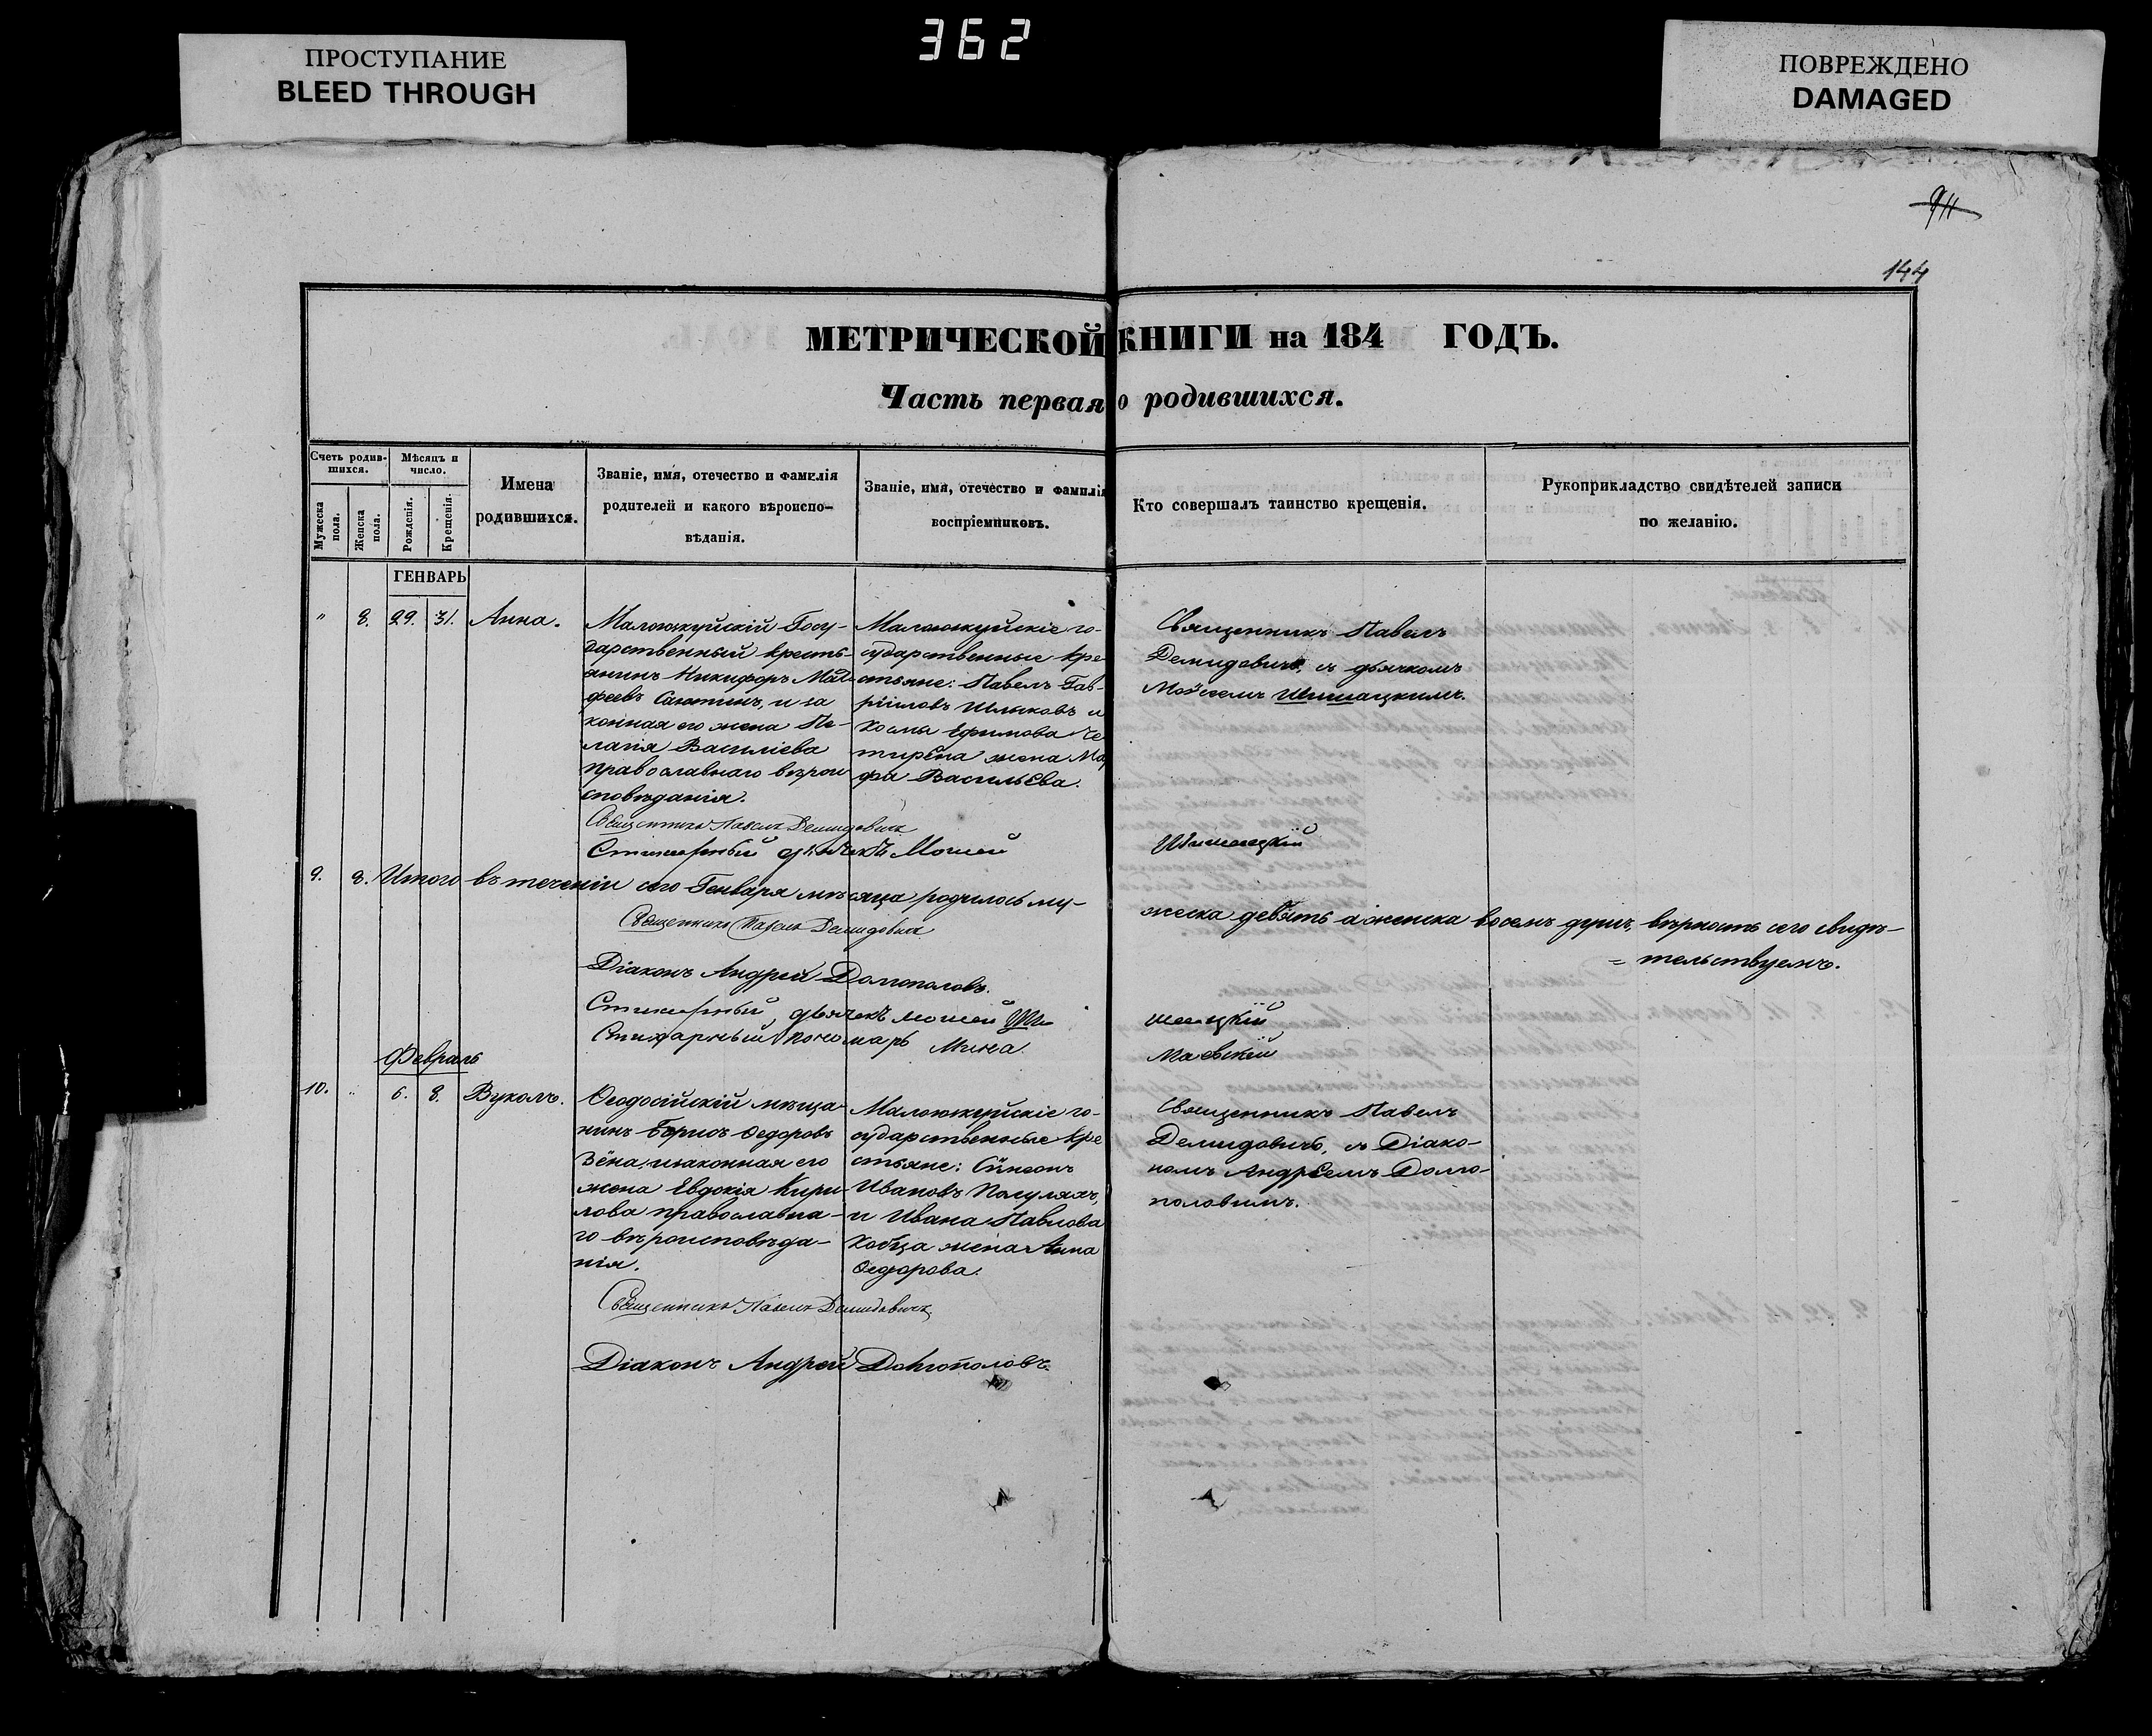 362
ПРОСТУПАНИЕ
BLEED THROUGH
ПОВРЕЖДЕНО
DAMAGED
911
144
МЕТРИЧЕСКОЙ КНИГИ на 184 ГОДЪ.
Часть первая о родившихся.
Счетъ родив-
шихся.
Мужеска
пола.
Женска
пола.
Мѣсяцъ и
число.
Рожденія.
Крещенія.
Имена
родившихся.
Званіе, имя, отечество и фамилія
родителей и какого вѣроиспо-
вѣданія.
Званіе, имя, отечество и фамилія
воспріемниковъ.
Кто совершалъ таинство крещенія.
Рукоприкладство свидѣтелей записи
по желанію.
ГЕНВАРЬ
" 8. 29. 31. Анна.
Малоюкуйскій Госу-
дарственный кресть-
янинъ Никифоръ Мат-
феевъ и за
конная его жена Пе-
лагія Василіева
православнаго вѣрои
сповѣданія.
Малоюкуйскіе го-
сударственные кре
стьяне: Павелъ Гав-
ріиловъ Шлыковъ и
Космы Ефимова Че
жена Мар
фа Васильева.
Священникъ Павелъ
Демидовичъ, съ дьячкомъ
Моѵсеемъ Шишацкимъ.
Священникъ Павелъ Демидовичъ
Стихарный дьячекъ Моисей Шишацкій
9. 8. Итого въ теченіи сего Генваря мѣсяца родилось му-
жеска девять а женска восемь душъ, вѣрность сего свидѣ-
= тельствуемъ.
Священникъ Павелъ Демидовичъ
Діаконъ Андрей Долгополовъ.
Стихарный дьячекъ Моисей Шишацкій
Стихарный пономарь Мина Маевскій
Февраль
10. " 6. 8. Вуколъ.
Ѳеодосійскій мѣща
нинъ Борисъ Ѳедоровъ
и законная его
жена Евдокія Кири
лова православна-
го вѣроисповѣда-
нія.
Малоюкуйскіе го-
сударственные кре
стьяне: Сѵмеонъ
Ивановъ
и Ивана Павлова
Кобца жена Анна
Ѳедорова.
Священникъ Павелъ
Демидовичъ, съ Діако-
номъ Андреемъ Долго-
половымъ.
Священникъ Павелъ Демидовичъ
Діаконъ Андрей Долгополовъ.